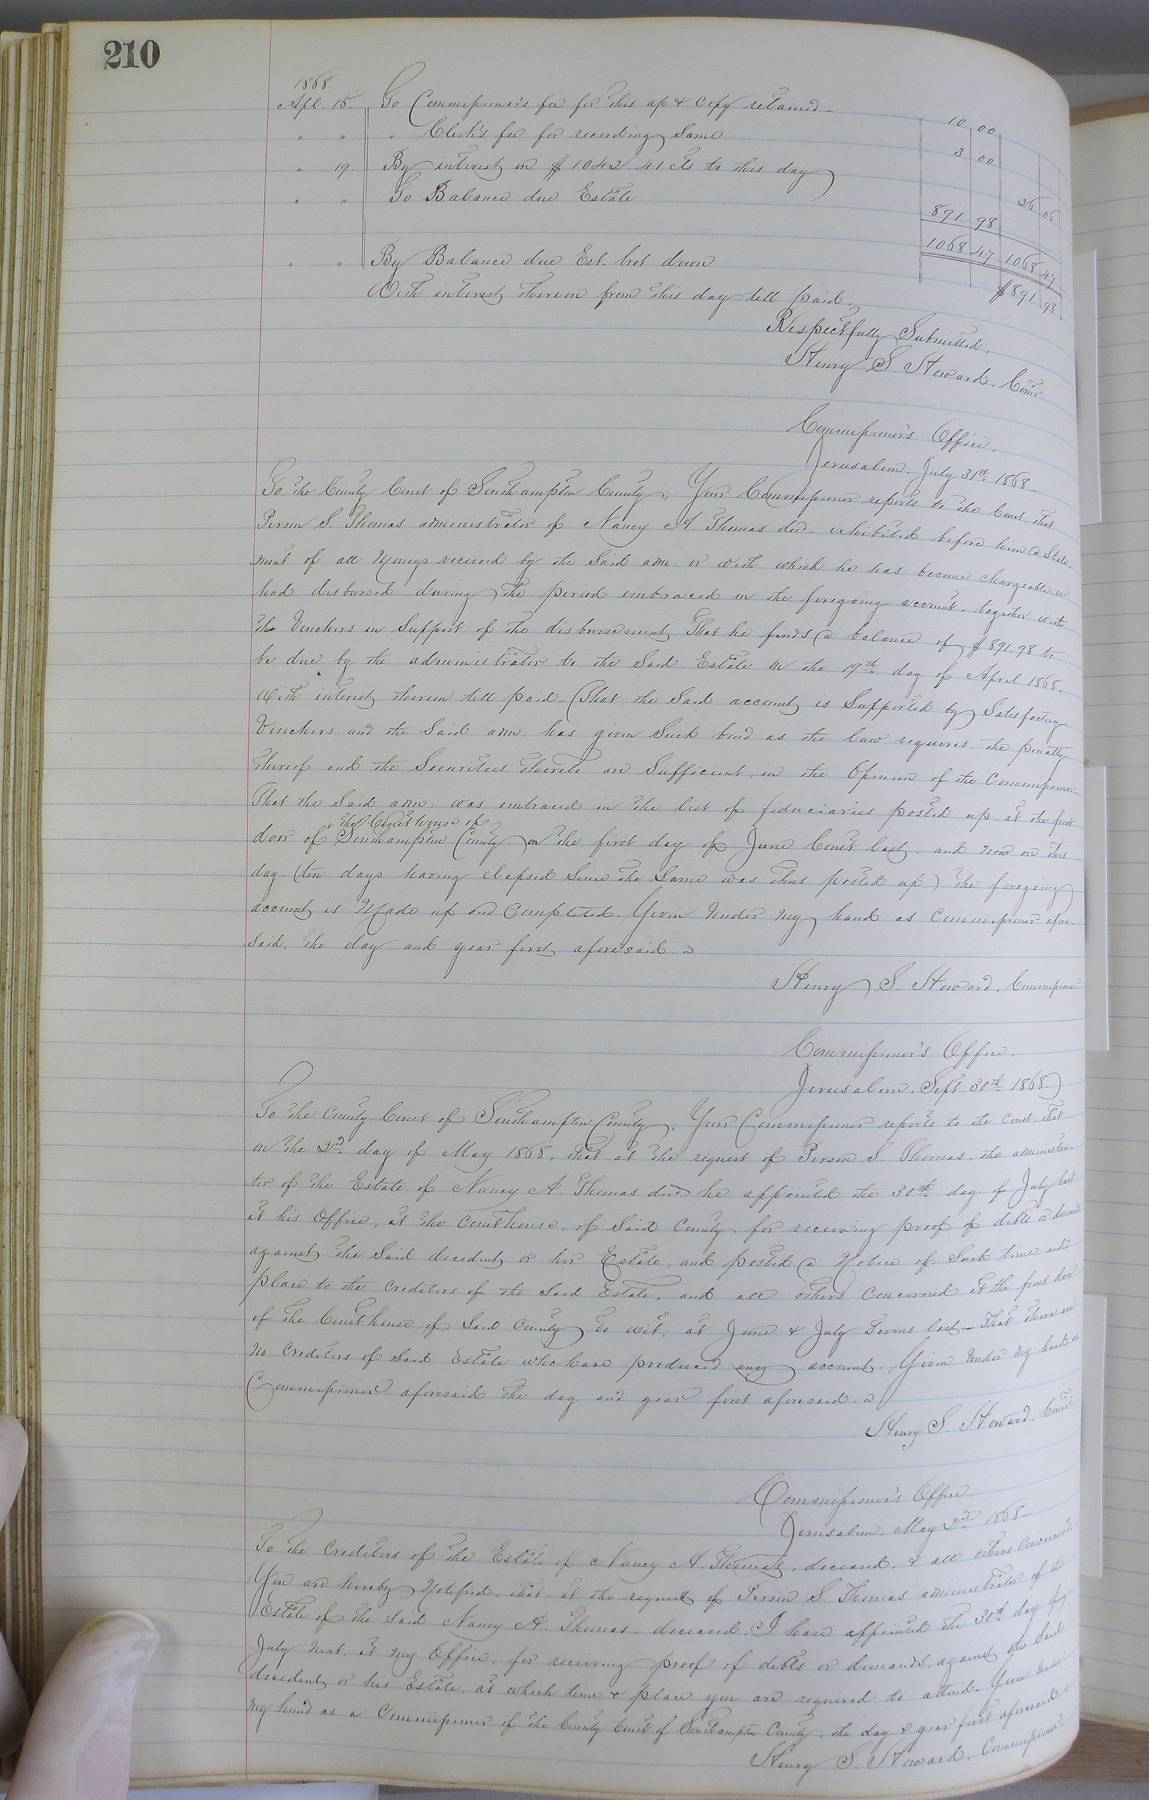 210
1868.
Apl. 15. To Commissioner's fee for this a/c & copy retained 10 00
" " " Clerk's fee for recording same 3 00
" 19. By interest on $1042.41 cts to this day 26 06
" " To Balance due Estate 891 98
1068 47 1068 47
" " By Balance due Est. brot. down $891 98
With interest thereon from this day till paid.
Respectfully Submitted.
Henry S. Howard, Comr.
Commissioner's Office.
Jerusalem, July 31st 1868
To the County Court of Southampton County, Your Commissioner reports to the Court that
Person S. Thomas administrator of Nancy A. Thomas decd. exhibited before him a State-
ment of all Moneys received by the Said adm. or with which he has become chargeable or
had disbursed during the period embraced in the foregoing account, together with
the Vouchers in Support of the disbursement. That he finds a balance of $891.98 to
be due by the administrator to the Said Estate on the 19th day of April 1868.
With interest thereon till paid (That the Said account is Supported by Satisfactory
Vouchers and the Said adm. has given Such bond as the law requires, the penalty
thereof and the Securities thereto are Sufficient, in the Opinion of the Commissioner
That the Said adm. was embraced in the list of fiduciaries posted up at the front
door of the Court house of Southampton County on the first day of June Court last, and now on this
day. (ten days having elapsed Since the Same was thus posted up.) the foregoing
account is Made up and Completed. Given Under My hand as Commissioner afore-
Said, the day and year first aforesaid.
Henry S. Howard, Commissioner
Commissioner's Office.
Jerusalem, Sept 30th 1868.
To the County Court of Southampton County, Your Commissioner reports to the Court that
on the 2nd day of May 1868, that at the request of Person S Thomas, the administra-
tor of the Estate of Nancy A. Thomas decd he appointed the 30th day of July last
at his Office, at the Courthouse, of Said County, for receiving proof of debts or demands
against the Said decedent or her Estate, and posted a Notice of Such time and
place to the Creditors of the Said Estate, and all others Concerned at the front door
of the Courthouse of Said County, to wit, at June & July Terms last. That there are
no Creditors of Said Estate who have produced any account. Given Under My hand as
Commissioner aforesaid the day and year first aforesaid.
Henry S. Howard, Comr.
Commissioner's Office.
Jerusalem, May 2nd 1868
To the Creditors of the Estate of Nancy A. Thomas, deceased, & all others Concerned
You are hereby Notified, that at the request of Person S Thomas administrator of the
Estate of the Said Nancy A. Thomas, deceased, I have appointed the 30th day of
July next, at My Office, for receiving proof of debts or demands, against the Said
decedent or his Estate, at which time & place you are required to attend. Given Under
My hand as a Commissioner of the County Court of Southampton County, the day & year first aforesaid
Henry S. Howard, Commissioner